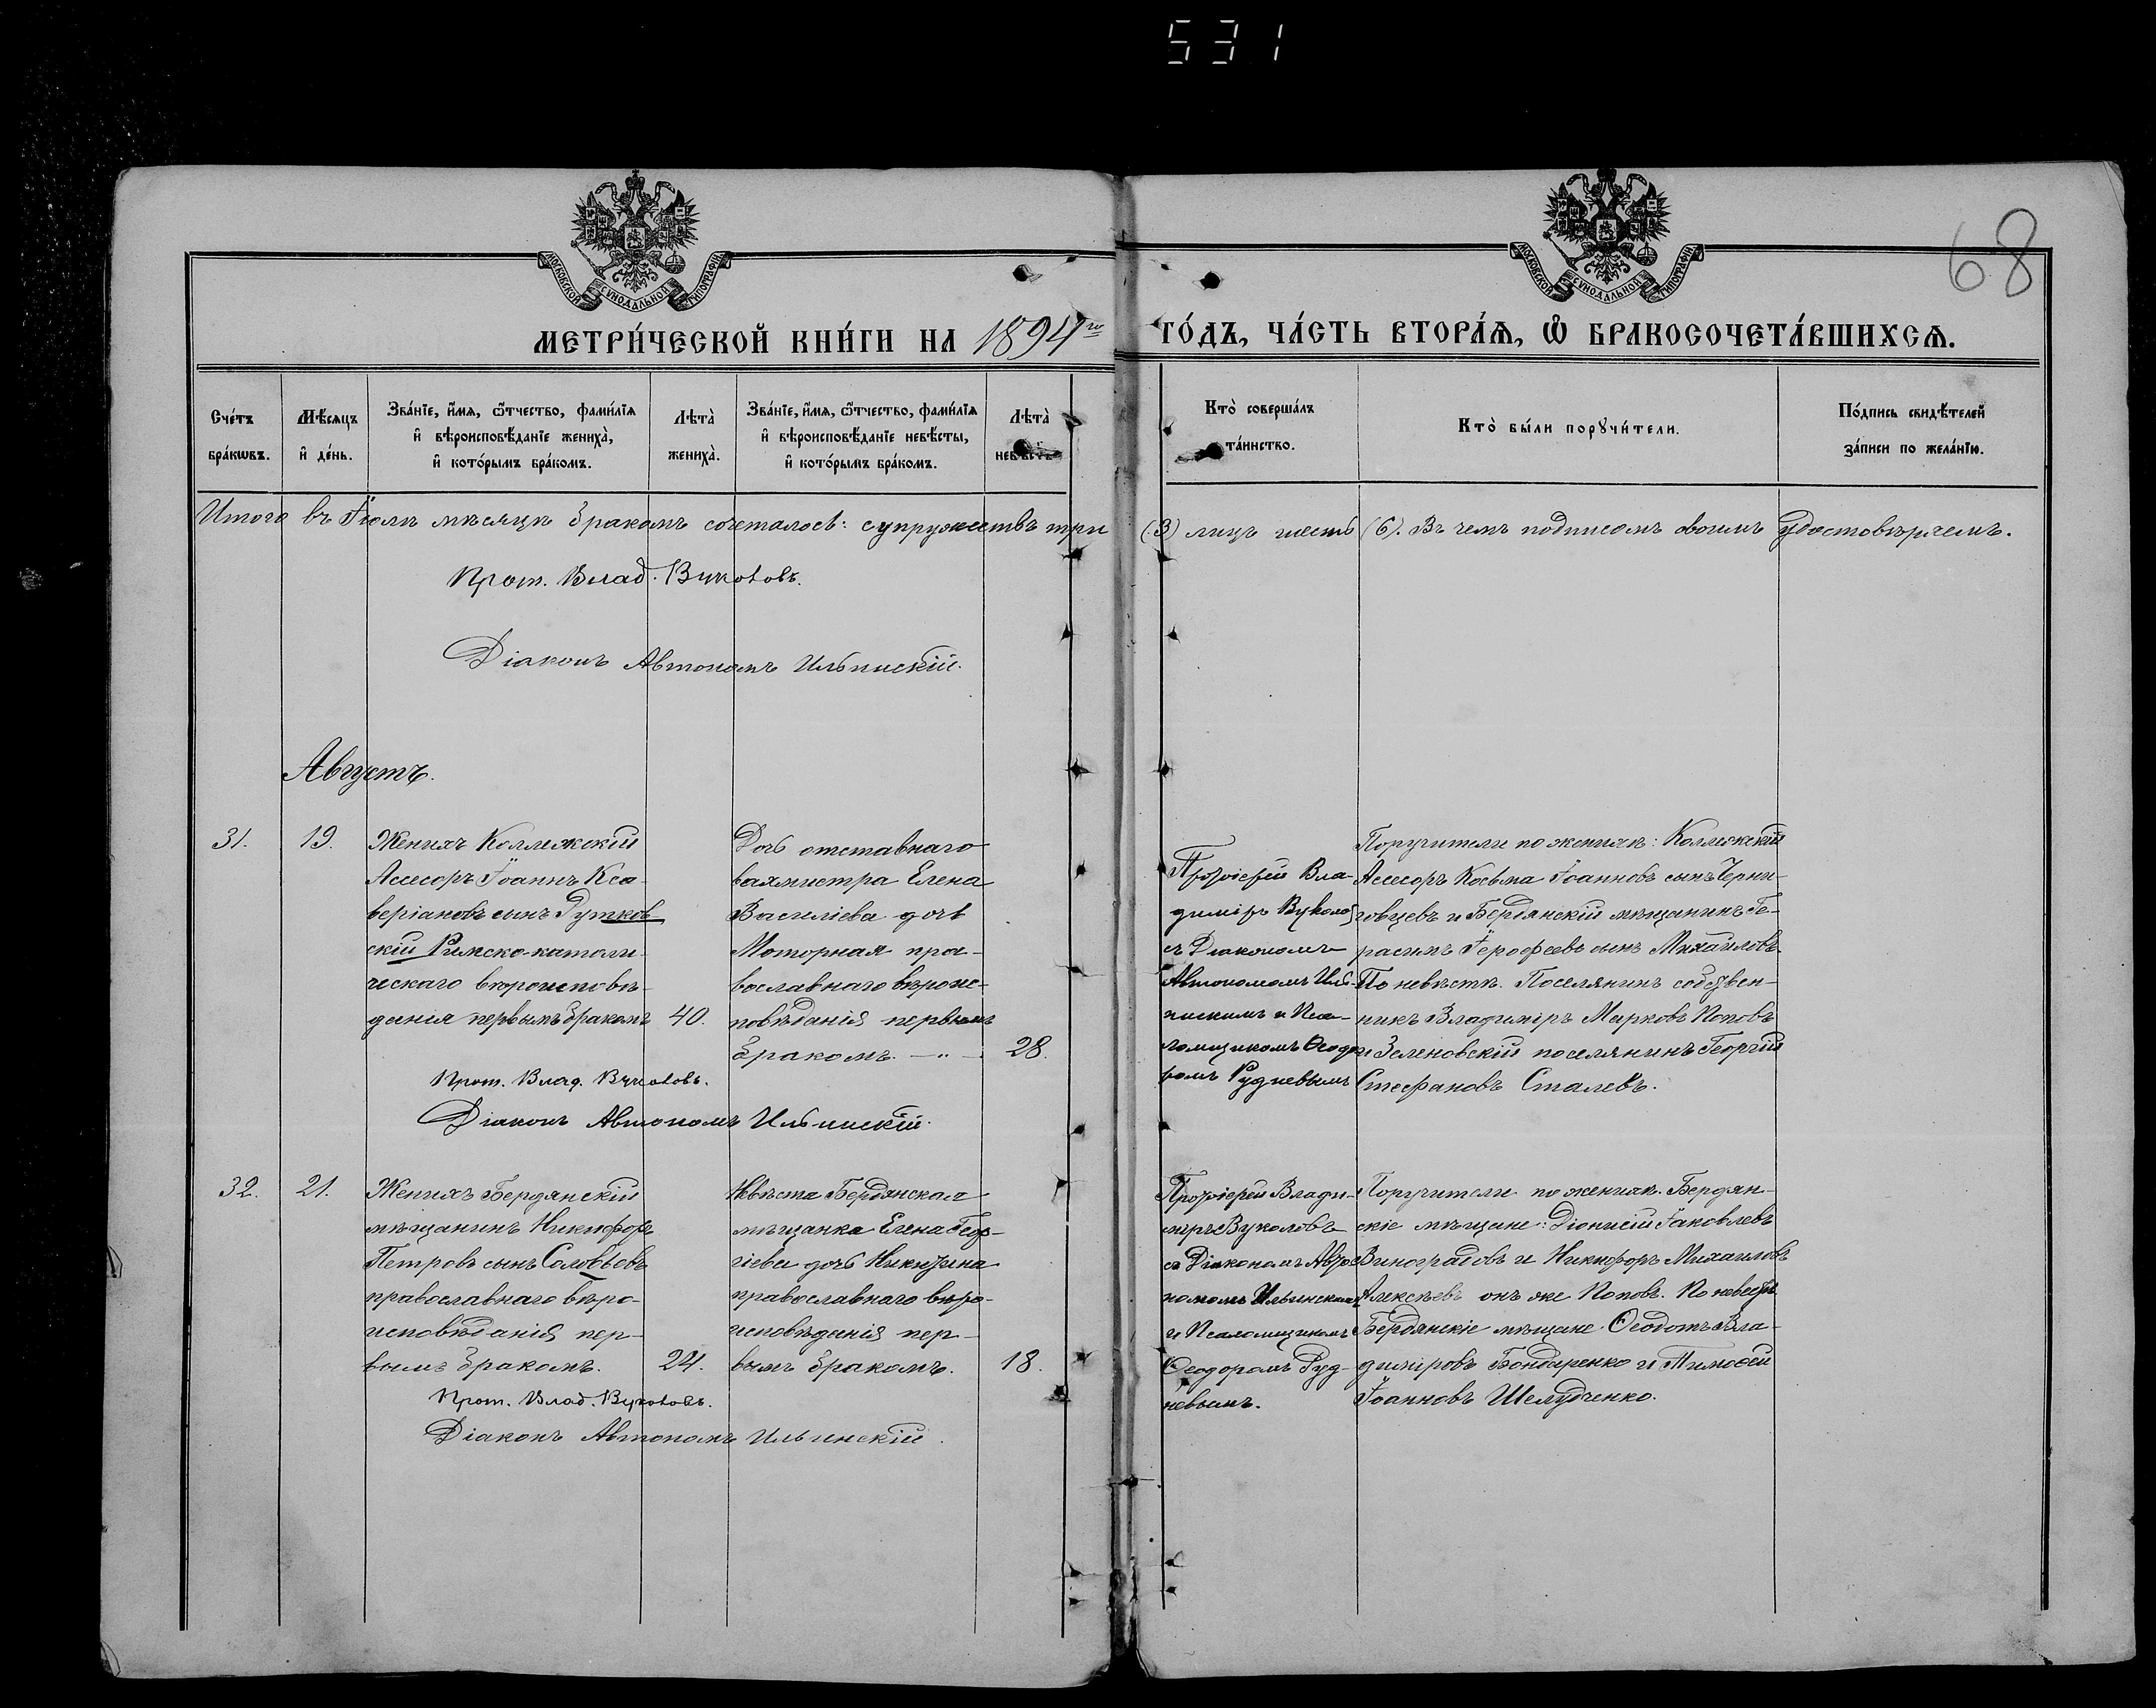 531
68
МОСКОВСКОЙ СУНОДАЛЬНОЙ ТИПОГРАФІИ
МОСКОВСКОЙ СУНОДАЛЬНОЙ ТИПОГРАФІИ
МЕТРИ́ЧЕСКОЙ КНИ́ГИ НА 1894го ГО́ДЪ, ЧА́СТЬ ВТОРА́Ѧ, Ѽ БРАКОСОЧЕТА́ВШИХСѦ.
Сче́тъ бра́кѡвъ.
Мѣ́сяцъ и҆ де́нь.
Зва́нїе, и҆́мѧ, ѻ҆́тчество, фами́лїѧ
и҆ вѣроисповѣ́данїе жениха̀,
и҆ кото́рымъ бра́комъ.
Лѣта̀ жениха̀.
Зва́нїе, и҆́мѧ, ѻ҆́тчество, фами́лїѧ
и҆ вѣроисповѣ́данїе невѣ́сты,
и҆ кото́рымъ бра́комъ.
Лѣта̀ невѣсты
Кто̀ соверша́лъ
та́инство.
Кто̀ бы́ли порꙋчи́тели.
По́дпись свидѣ́телей
за́писи по жела́нїю.
Итого въ Іюлѣ мѣсяцѣ бракомъ сочеталось: супружествъ три (3) лицъ шесть (6). Въ чемъ подписомъ своимъ удостовѣряемъ.
Прот. Влад. Вуколовъ.
Діаконъ Автономъ Ильинскій.
Августъ.
31.
19.
Женихъ Коллежскій
Ассесоръ Іоаннъ Кса-
веріановъ сынъ Рутков
скій Римско-католи-
ческаго вѣроисповѣ-
данія первымъ бракомъ
40.
Дочь отставнаго
вахмистра Елена
Василіева дочь
Моторная пра-
вославнаго вѣроис-
повѣданія первымъ
бракомъ. —"—
28.
Протоіерей Вла-
димір Вуколов
съ Діакономъ
Автономомъ Иль-
инскимъ и Пса-
ломщикомъ Ѳеодо
ромъ Рудневымъ
Поручители по женихѣ: Коллежскій
Ассесоръ Косьма Іоанновъ сынъ Черни-
говцевъ и Бердянскій мѣщанинъ Ге-
расимъ Іерофеевъ сынъ Михайловъ.
По невѣстѣ. Поселянинъ собствен-
никъ Владиміръ Марковъ Поповъ
и Зеленовскій поселянинъ Георгій
Стефановъ Сталевъ.
Прот. Влад. Вуколовъ.
Діаконъ Автономъ Ильинскій.
32.
21.
Женихъ Бердянскій
мѣщанинъ Никифоръ
Петровъ сынъ Соловьовъ
православнаго вѣро-
исповѣданія пер-
вымъ бракомъ.
24.
Невѣста Бердянская
мѣщанка Елена Геор-
гіева дочь Никитина
православнаго вѣро-
исповѣданія пер-
вымъ бракомъ.
18.
Протоіерей Влади-
міръ Вуколовъ
съ Діакономъ Авто
номомъ Ильинскимъ
и Псаломщикомъ
Ѳеодоромъ Руд-
невымъ.
Поручители по женихѣ. Бердян-
скіе мѣщане: Діонисій Іаковлевъ
Виноградовъ и Никифоръ Михаиловъ
Алексѣевъ онъ же Поповъ. По невестѣ
Бердянскіе мѣщане Ѳеодотъ Вла-
диміровъ Бондаренко и Тимоѳей
Іоанновъ Шелудченко.
Прот. Влад. Вуколовъ.
Діаконъ Автономъ Ильинскій.